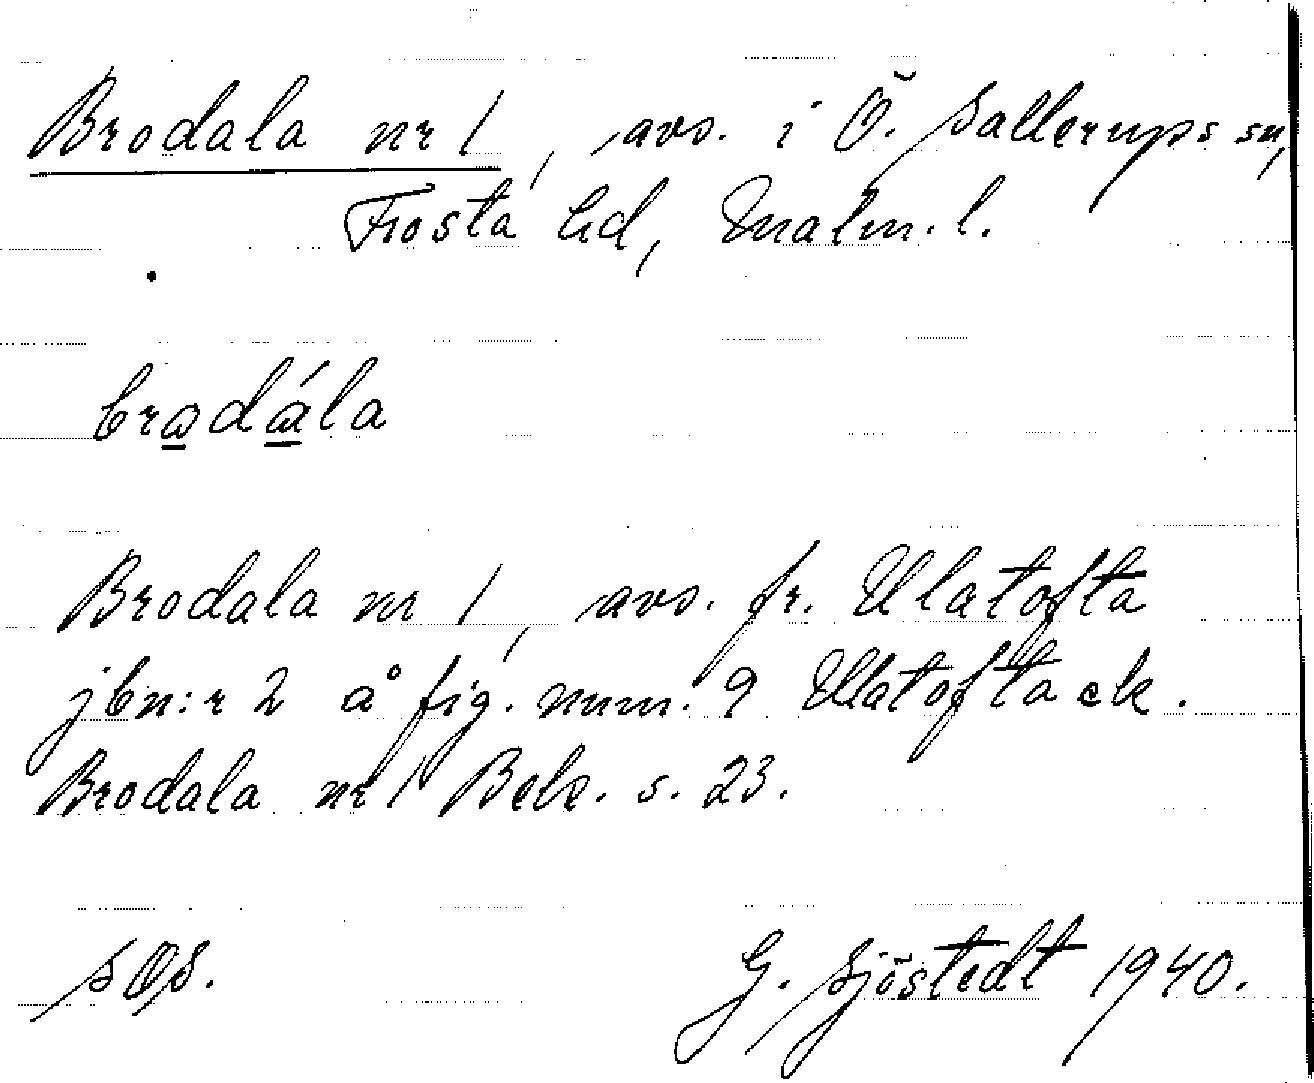 Brodala nr 1, avs. i Ö. Sallerups sn,
Frosta hd, Malm. l.
brodála
Brodala nr 1, avs. fr. Ullatofta
jbn:r 2 å fig. num. 9 Ullatofta ek.
Brodala nr 1 Beb. s. 23.
G. Sjöstedt 1940.